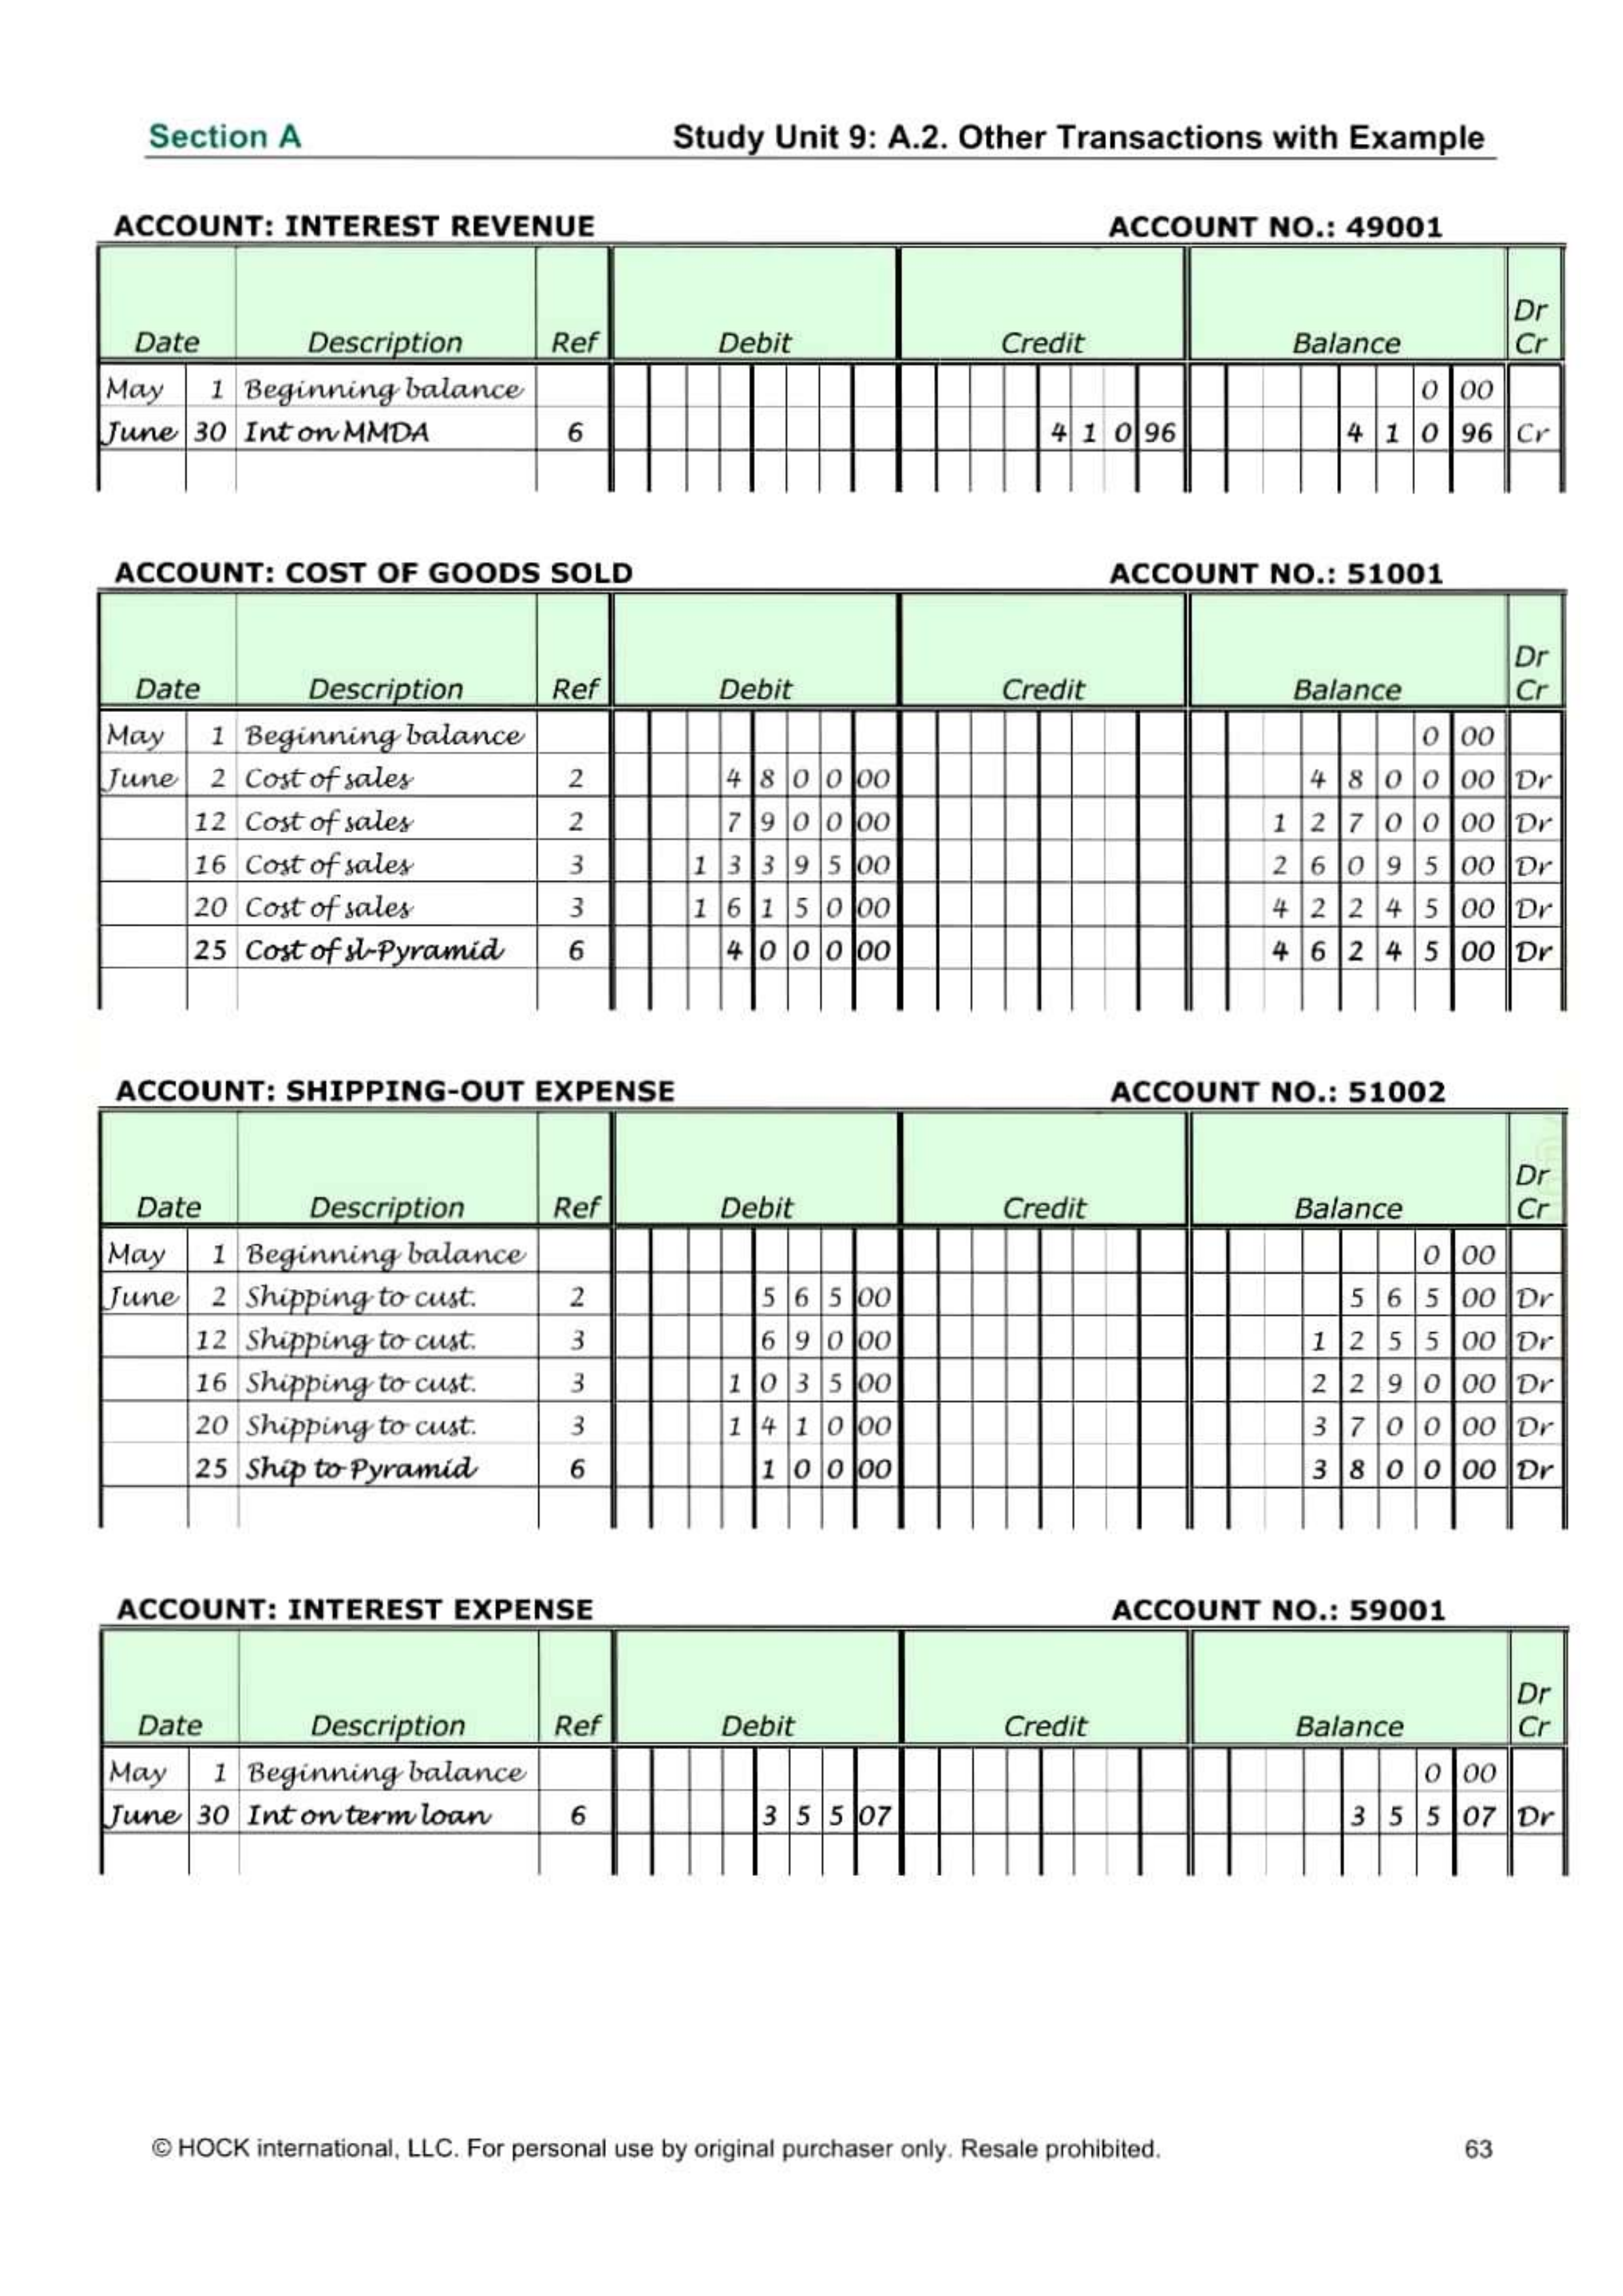 Section A Study Unit 9: A.2. Other Transactions with Example
ACCOUNT: INTEREST REVENUE ACCOUNT NO.: 49001
Date Description Ref Debit Credit Balance Dr Cr
May 1 Beginning balance 0 00
June 30 Int on MMDA 6 4 1 0 96 4 1 0 96 Cr
ACCOUNT: COST OF GOODS SOLD ACCOUNT NO.: 51001
Date Description Ref Debit Credit Balance Dr Cr
May 1 Beginning balance 0 00
June 2 Cost of sales 2 4 8 0 0 00 4 8 0 0 00 Dr
12 Cost of sales 2 7 9 0 0 00 1 2 7 0 0 00 Dr
16 Cost of sales 3 1 3 3 9 5 00 2 6 0 9 5 00 Dr
20 Cost of sales 3 1 6 1 5 0 00 4 2 2 4 5 00 Dr
25 Cost of sl-Pyramid 6 4 0 0 0 00 4 6 2 4 5 00 Dr
ACCOUNT: SHIPPING-OUT EXPENSE ACCOUNT NO.: 51002
Date Description Ref Debit Credit Balance Dr Cr
May 1 Beginning balance 0 00
June 2 Shipping to cust. 2 5 6 5 00 5 6 5 00 Dr
12 Shipping to cust. 3 6 9 0 00 1 2 5 5 00 Dr
16 Shipping to cust. 3 1 0 3 5 00 2 2 9 0 00 Dr
20 Shipping to cust. 3 1 4 1 0 00 3 7 0 0 00 Dr
25 Ship to Pyramid 6 1 0 0 00 3 8 0 0 00 Dr
ACCOUNT: INTEREST EXPENSE ACCOUNT NO.: 59001
Date Description Ref Debit Credit Balance Dr Cr
May 1 Beginning balance 0 00
June 30 Int on term loan 6 3 5 5 07 3 5 5 07 Dr
© HOCK international, LLC. For personal use by original purchaser only. Resale prohibited. 63